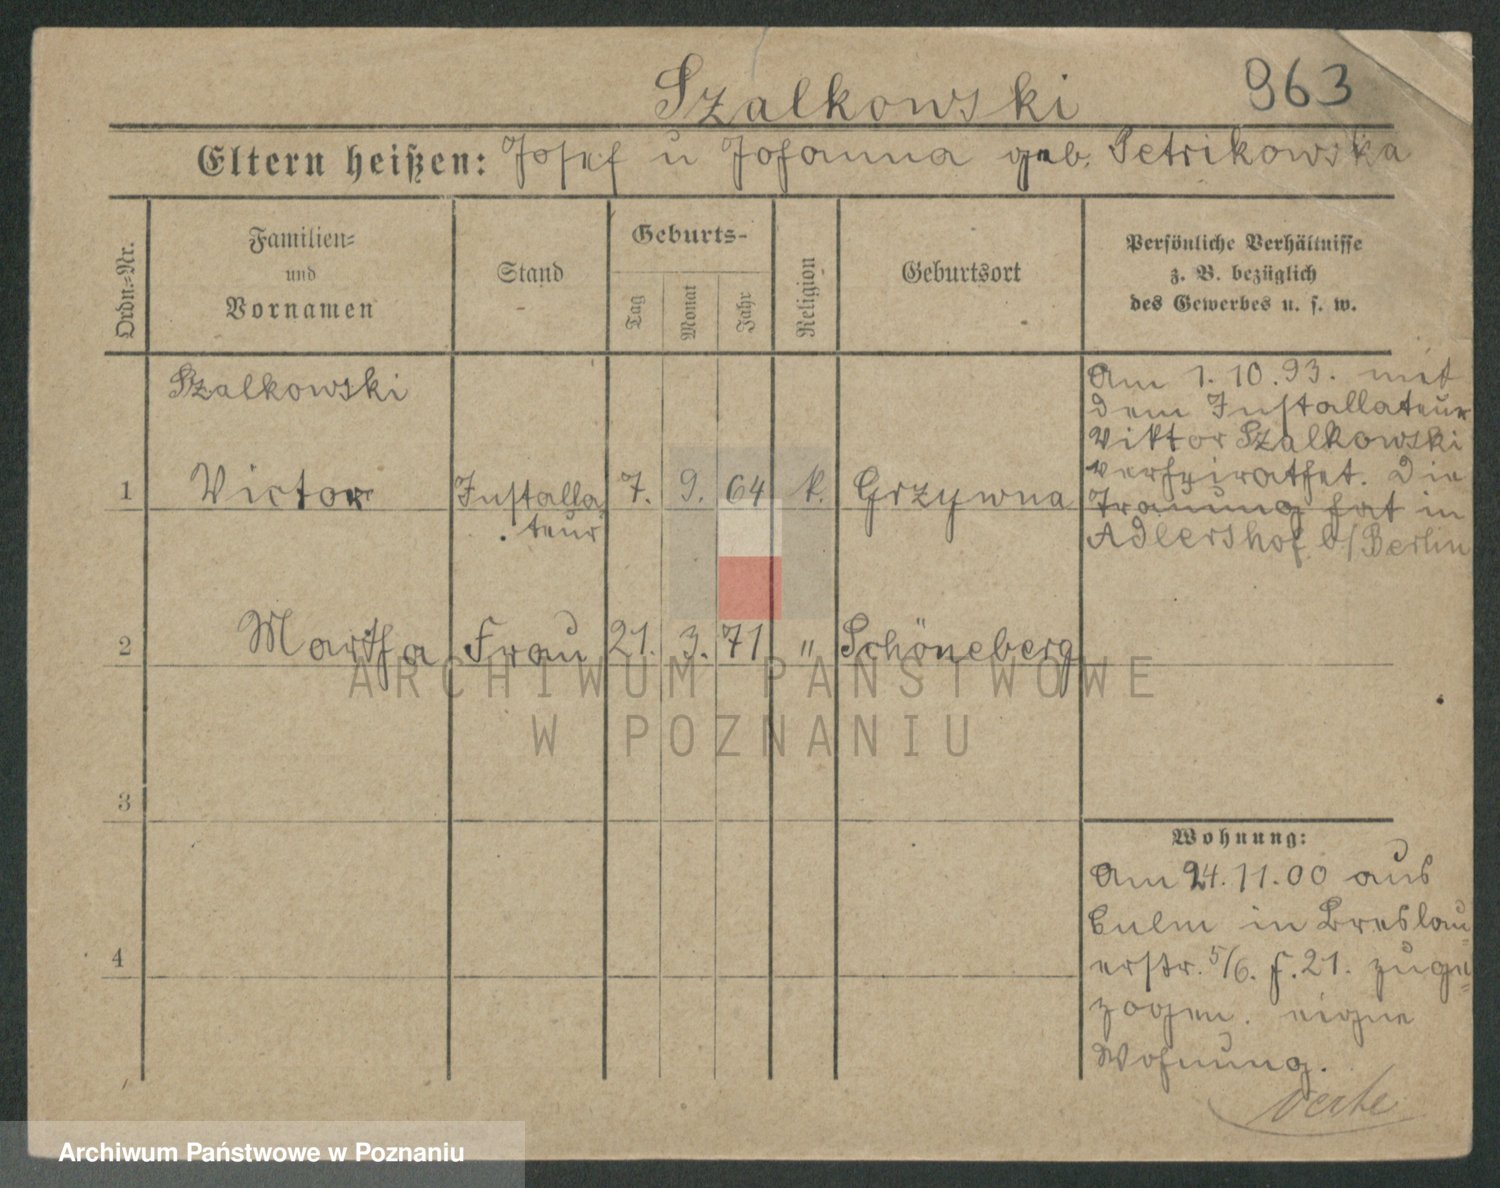 Szalkowski 963
Eltern heißen: Josef u Johanna geb. Petrikowska
Ordn.-Nr.
Familien-
und
Vornamen
Stand
Geburts-
Tag
Monat
Jahr
Religion
Geburtsort
Persönliche Verhältnisse
z. B. bezüglich
des Gewerbes u. s. w.
Szalkowski
1 Victor Installa- 7. 9. 64 k. Grzywna
teur
2 Martha Frau 21. 3. 71 " Schöneberg
3
4
Am 1.10.93. mit
dem Installateur
Viktor Szalkowski
verheirathet. Die
Trauung hat in
Adlershof b/Berlin
Wohnung:
Am 24.11.00 aus
Culm in Breslau-
erstr. 5/6. F. 21. zuge-
zogen. eigne
Wohnung.
ARCHIWUM PAŃSTWOWE
W POZNANIU
Archiwum Państwowe w Poznaniu